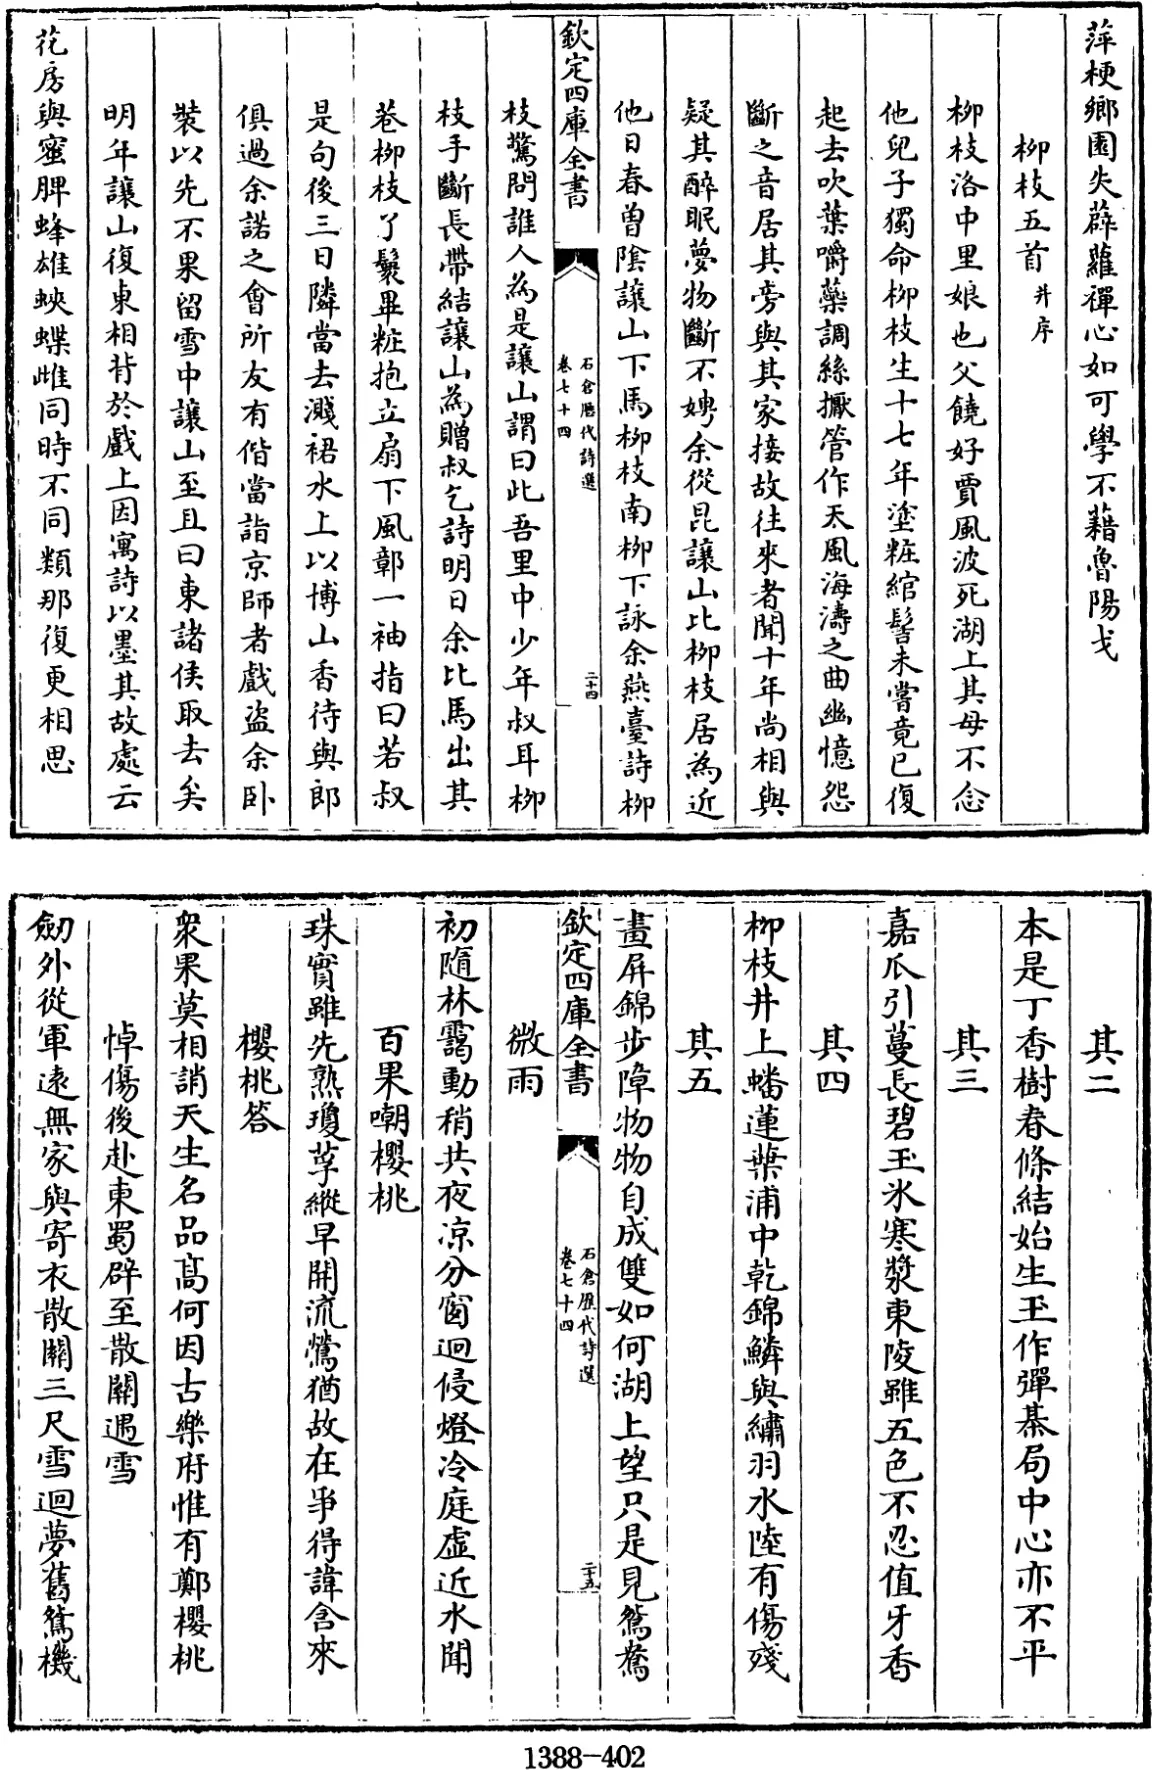 萍梗鄉園失薜蘿禪心如可學不藉魯陽戈
柳枝五首并序
柳枝洛中里娘也父饒好賈風波死湖上其母不念
他兒子獨命柳枝生十七年塗粧綰髻未嘗竟已復
起去吹葉嚼蘂調絲擫管作天風海濤之曲幽憶怨
斷之音居其旁與其家接故往來者聞十年尚相與
疑其醉眠夢物斷不娉余從昆讓山比柳枝居為近
他日春曾陰讓山下馬柳枝南柳下詠余燕臺詩柳
欽定四庫全書
石倉歷代詩選
卷七十四
二十四
枝驚問誰人為是讓山謂曰此吾里中少年叔耳柳
枝手斷長帶結讓山為贈叔乞詩明日余比馬出其
巷柳枝丫鬟畢粧抱立扇下風鄣一袖指曰若叔
是句後三日隣當去濺裙水上以博山香待與郎
俱過余諾之會所友有偕當詣京師者戲盜余卧
裝以先不果留雪中讓山至且曰東諸侯取去矣
明年讓山復東相背於戲上因寓詩以墨其故處云
花房與蜜脾蜂雄蛺蝶雌同時不同類那復更相思
其二
本是丁香樹春條結始生玉作彈棊局中心亦不平
其三
嘉瓜引蔓長碧玉氷寒漿東陵雖五色不忍值牙香
其四
柳枝井上蟠蓮葉浦中乾錦鱗與繡羽水陸有傷殘
其五
畫屏錦步障物物自成雙如何湖上望只是見鴛鴦
欽定四庫全書
石倉歷代詩選
卷七十四
二十五
微雨
初隨林靄動稍共夜凉分窗迥侵燈冷庭虛近水聞
百果嘲櫻桃
珠實雖先熟瓊莩縱早開流鶯猶故在爭得諱含來
櫻桃答
衆果莫相誚天生名品髙何因古樂府惟有鄭櫻桃
悼傷後赴東蜀辟至散關遇雪
劒外從軍遠無家與寄衣散關三尺雪迴夢舊鴛機
1388-402